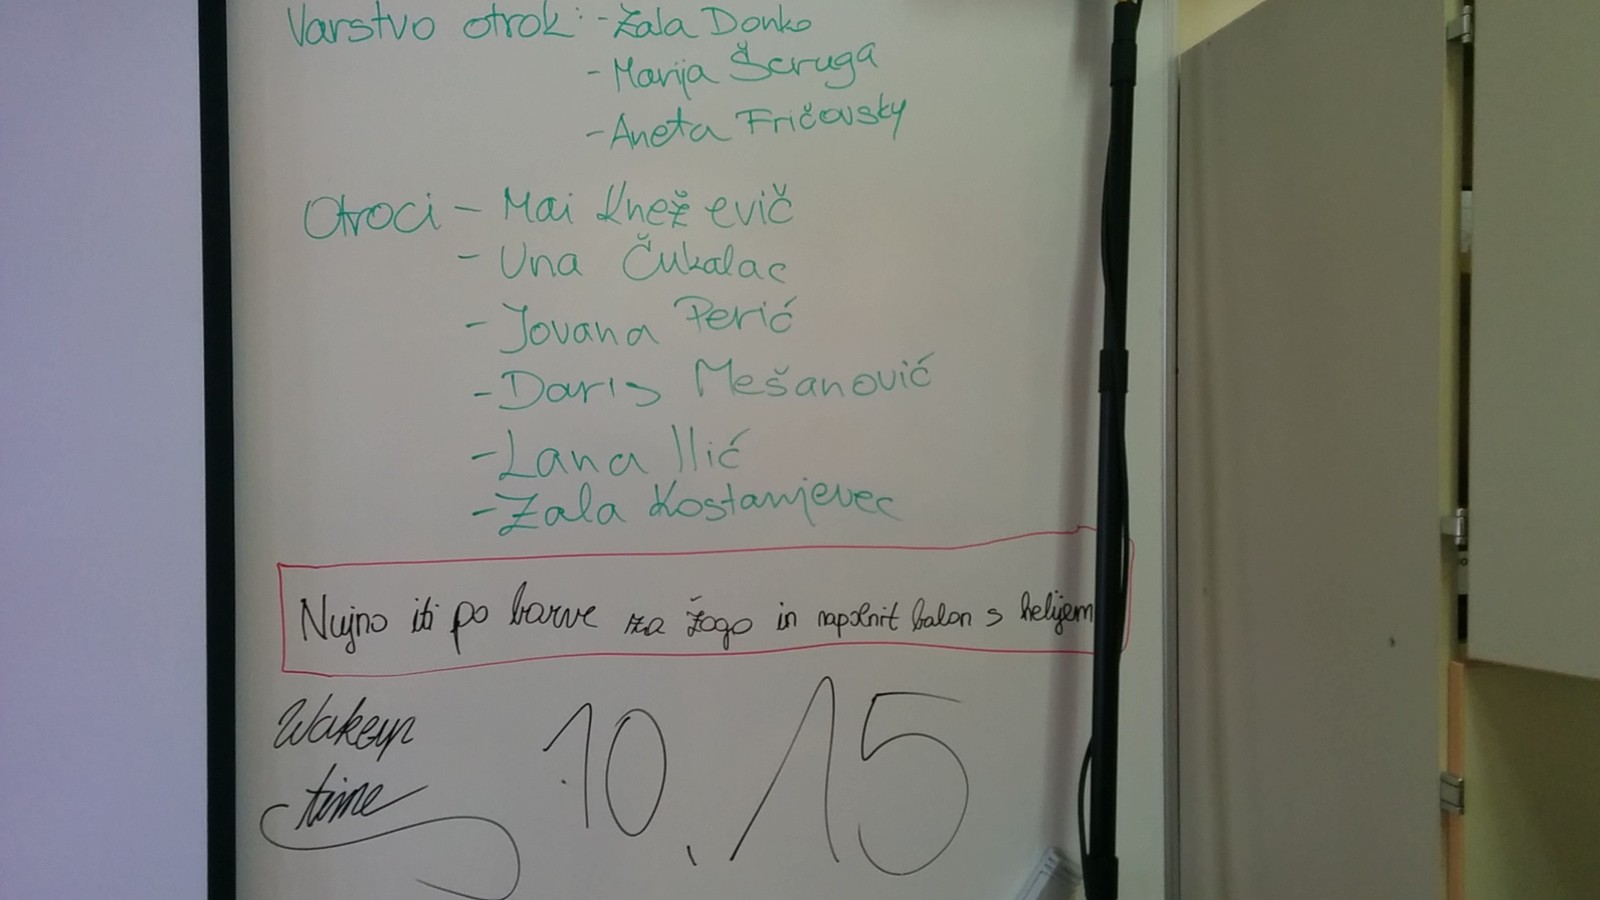 Varstvo otrok: - Žala Donko
- Marija Šcruga
- Aneta Fričovsky
Otroci - Mai Knežević
- Una Čukalac
- Jovana Perić
- Daris Mešanović
- Lana Ilić
- Zala Kostanjevec
Nujno iti po barve za žogo in napolnit balon s helijem
Wakeup
time
10.15